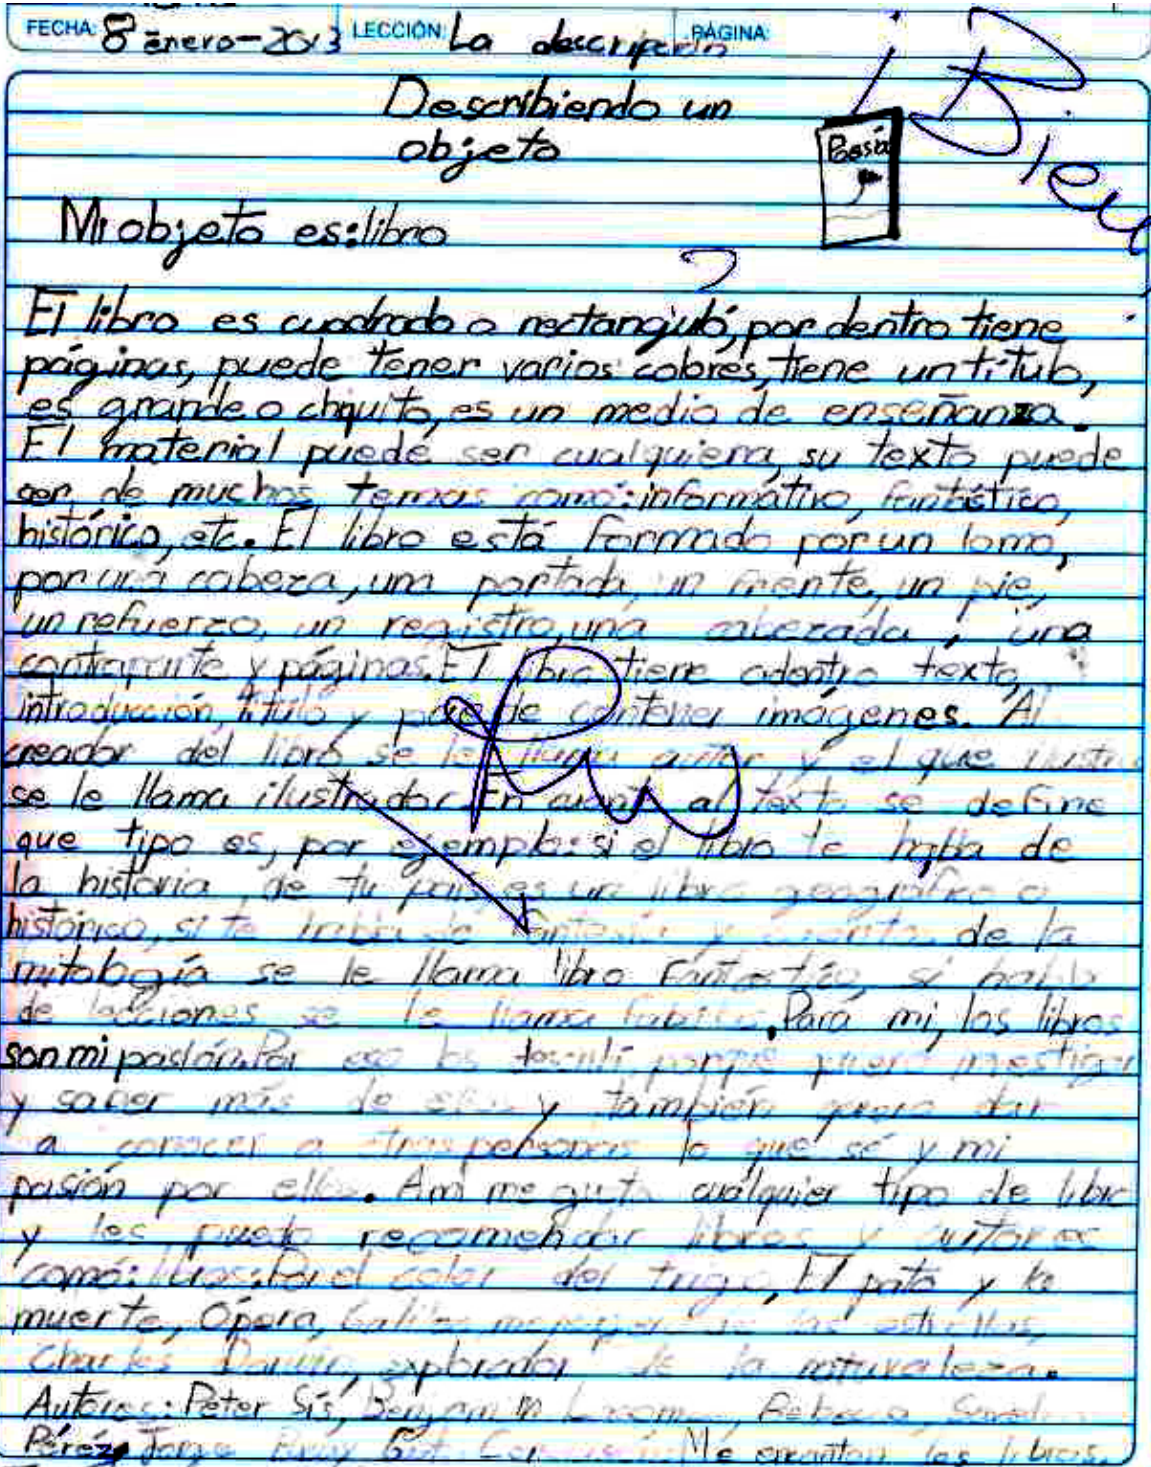 FECHA: 8 enero-2013 LECCIÓN: La descripción PÁGINA:
¡Bien
Describiendo un
objeto
Poesía
Mi objeto es: libro
2
El libro es cuadrado o rectangulo, por dentro tiene
páginas, puede tener varios colores, tiene un título,
es grande o chiquito, es un medio de enseñanza.
El material puede ser cualquiera, su texto puede
ser de muchos temas como: informativo, fantástico,
histórico, etc. El libro está formado por un lomo,
por una cabeza, una portada, un frente, un pie,
un refuerzo, un registro, una cabezada, una
contraparte y páginas. El libro tiene adentro texto,
introducción, título y puede contener imágenes. Al
creador del libro se le llama autor y el que ilustra
se le llama ilustrador. En cuanto al texto se define
que tipo es, por ejemplo: si el libro te habla de
la historia de tu país es un libro geográfico o
histórico, si te habla de fantasía y cuentos de la
mitología se le llama libro Fantástico, si habla
de lecciones se le llama fabulas. Para mi, los libros
son mi pasión. Por eso los describí porque quiero investigar
y saber más de ellos y también quiero dar
a conocer a otras personas lo que sé y mi
pasión por ellos. A mí me gusta cualquier tipo de libro
y les puedo recomendar libros y autores
como: libros: Por el color del trigo, El pato y la
muerte, Ópera, Galileo mensajero de las estrellas,
Charles Darwin, explorador de la naturaleza.
Autores: Peter Sís, Benjamin
Pérez, Jorge Me encantan los libros.